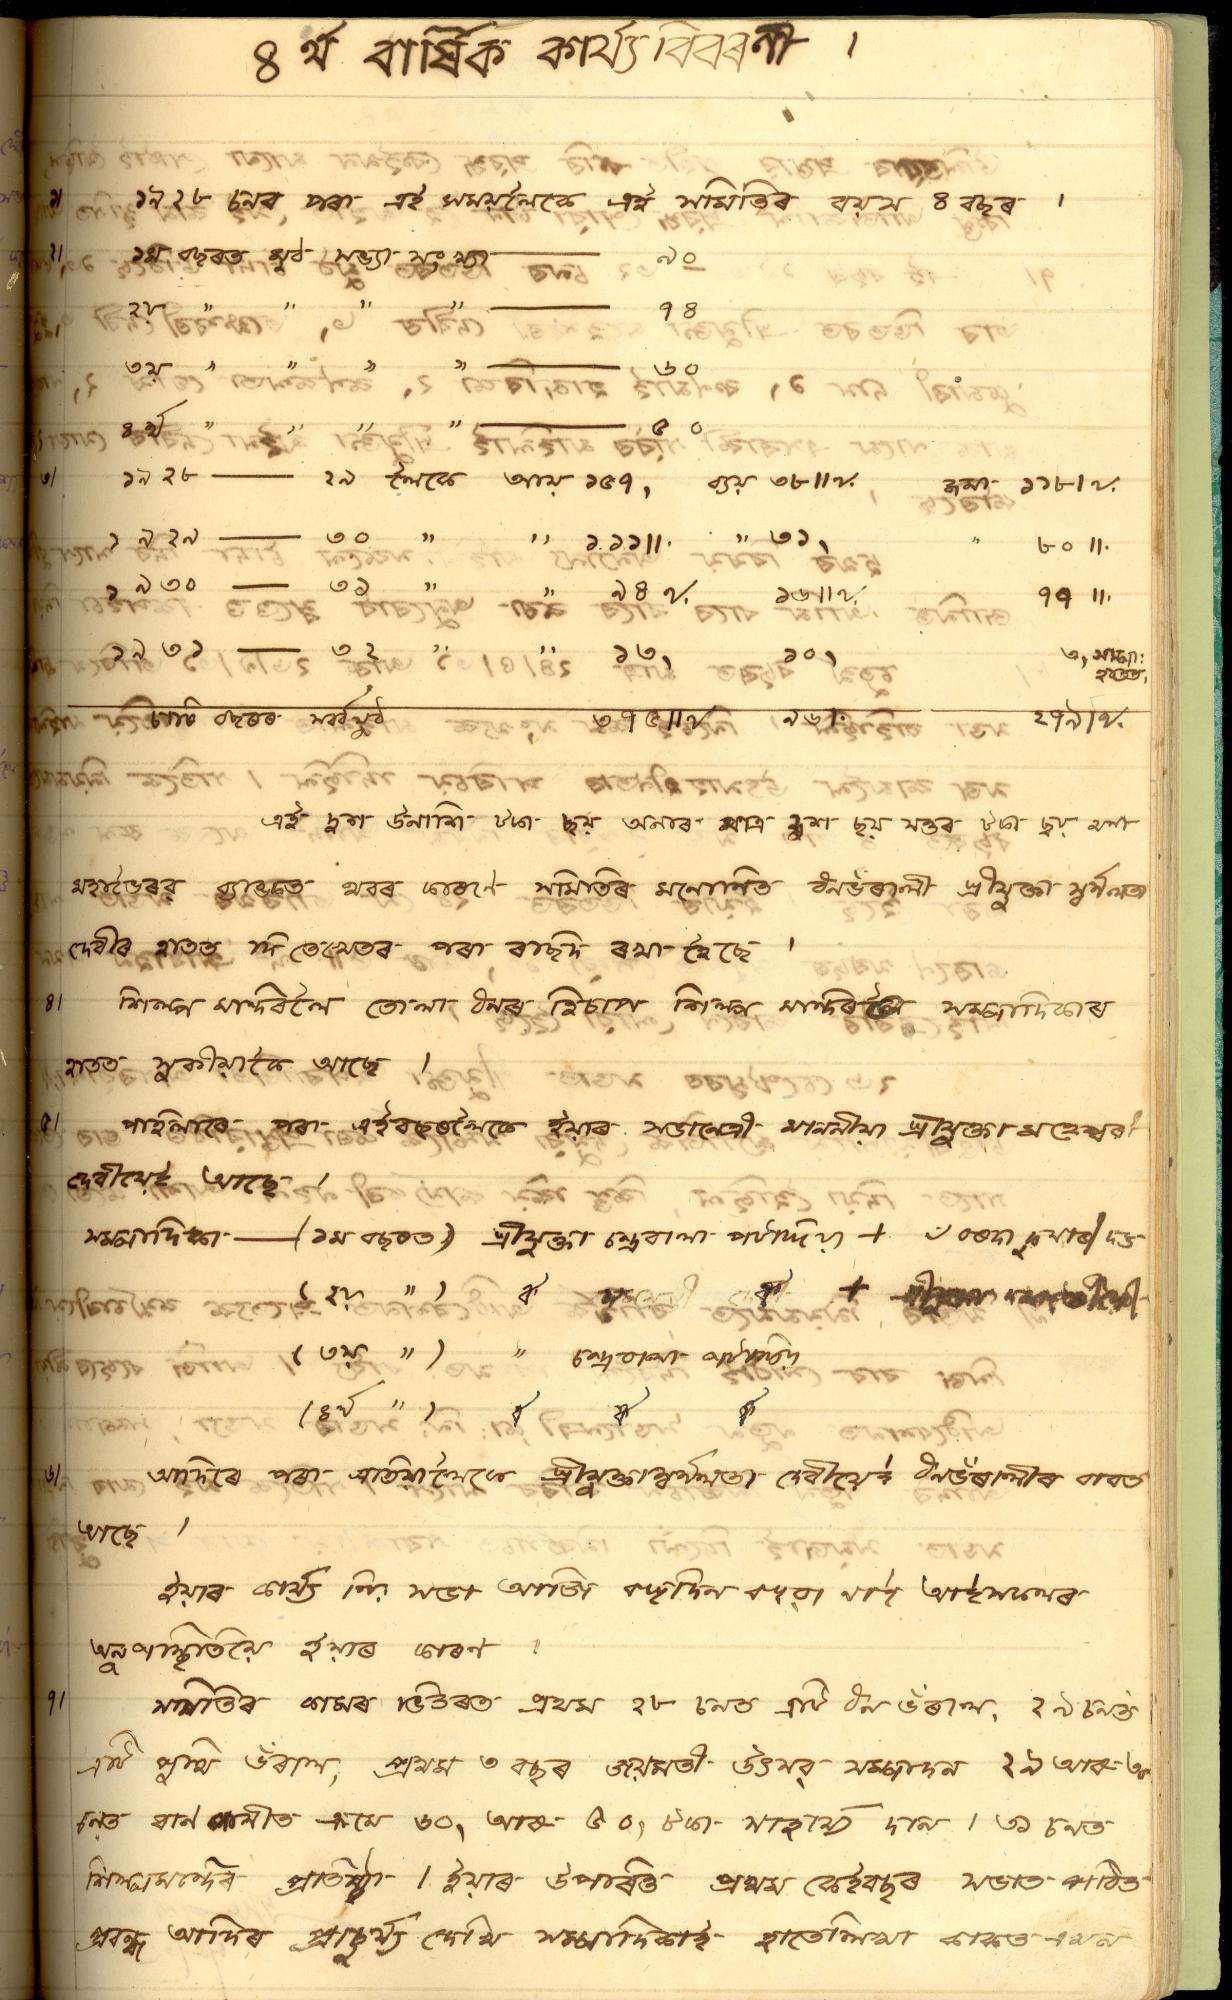 ৪ৰ্থ বাৰ্ষিক কাৰ্য্য বিবৰনী ।
১। ১৯২৮ চনৰ পৰা এই সময়লৈকে এই সমিতিৰ বয়স ৪ বছৰ ।
২। ১ম বছৰত মুঠ সভ্যা সংখ্যা —— ৯০
২য় " " " " —— ৭৪
৩য় " " " " —— ৬০
৪ৰ্থ " " " " —— ৫০
৩। ১৯২৮ —— ২৯ লৈকে আয় ১৫৭, ব্যয় ৩৮॥৵. জমা ১১৮।৵.
১৯২৯ —— ৩০ " " ১১১॥. " ৩১, " ৮০॥.
১৯৩০ —— ৩১ " " ৯৪৵. ১৬॥৵. ৭৭॥.
১৯৩১ —— ৩২ " " ১৩, ১০, ৩, সম্পা: হাতত,
চাৰি বছৰৰ সৰ্ব্বমুঠ ৩৭৫॥৵. ৯৬।. ২৭৯।৵.
এই দুশ উনাশি টকা ছয় অনাৰ মাত্ৰ দুশ ছয় সত্তৰ টকা ছয় অনা
মহাভৈৰৱ বেঙ্কত থবৰ কাৰণে সমিতিৰ মনোনিত ধনভঁৰালী শ্ৰীযুক্তা স্বৰ্ণলতা
দেবীৰ হাতত দি তেখেতৰ পৰা ৰাছদি ৰখা হৈছে ।
৪। শিল্প মন্দিৰলৈ তোলা ধনৰ হিচাপ শিল্প মন্দিৰৰ সম্পাদিকাৰ
হাতত সুকীয়াকৈ আছে ।
৫। পাহিলাৰে পৰা এইবছৰলৈকে ইয়াৰ সভানেত্ৰী মাননীয়া শ্ৰীযুক্তা মহেশ্বৰী
দেবীয়েই আছে ।
সম্পাদিকা —— (১ম বছৰত) শ্ৰীযুক্তা চন্দ্ৰবালা +
(২য় ") ঐ ঐ +
(৩য় ") " চন্দ্ৰবালা
(৪ৰ্থ ") ঐ ঐ ঐ
৬। আদিৰে পৰা এতিয়ালৈকে শ্ৰীযুক্তা স্বৰ্ণলতা দেবীয়েই ধনভঁৰালীৰ বাবত
আছে ।
ইয়াৰ কাৰ্য্য নিঃ সভা আজি বহুদিন বহৱা নাই আইসকলৰ
অনুপস্থিতিয়ে ইয়াৰ কাৰণ ।
৭। সমিতিৰ কামৰ ভিতৰত প্ৰথম ২৮ চনত এটি ধন ভঁৰাল, ২৯ চনত
এটি পুথি ভঁৰাল, প্ৰথম ৩ বছৰ জয়মতী উৎসৱ সম্পাদন ২৯ আৰু ৩০
চনত বান পানীত ক্ৰমে ৬০, আৰু ৫০, টকা সাহায্য দান । ৩১ চনত
শিল্পমন্দিৰ প্ৰতিষ্ঠা । ইয়াৰ উপৰিও প্ৰথম কেইবছৰ সভাত পঠিত
প্ৰবন্ধ আদিৰ প্ৰাচুৰ্য্য দেখি সম্পাদিকাই হাতেলিখা কাকত এখন